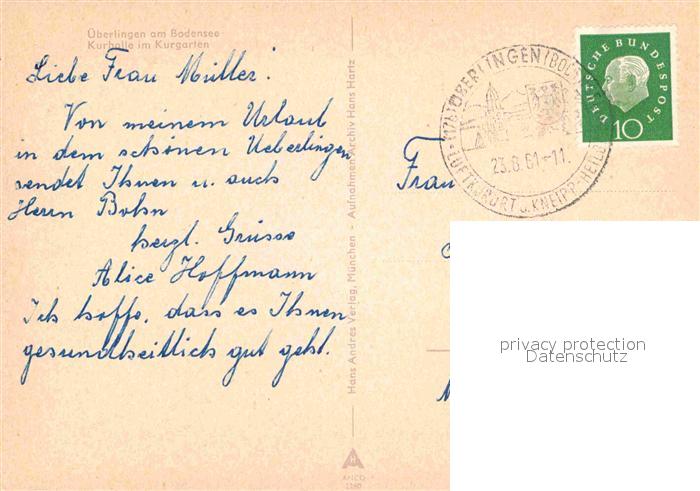 Überlingen am Bodensee
Kurhalle im Kurgarten
Liebe Frau Müller!
Von meinem Urlaub
in dem schönen Ueberlingen
sendet Ihnen u. auch
Herrn Bohn
herzl. Grüsse
Alice Hoffmann
Ich hoffe, dass es Ihnen
gesundheitlich gut geht.
Hans Andres Verlag, München - Aufnahmen Archiv Hans Hartz
ANCO
ÜBERLINGEN
23.8.61-11
LUFTKURORT U. KNEIPP-HEILB
DEUTSCHE BUNDESPOST
10
Frau
privacy protection
Datenschutz